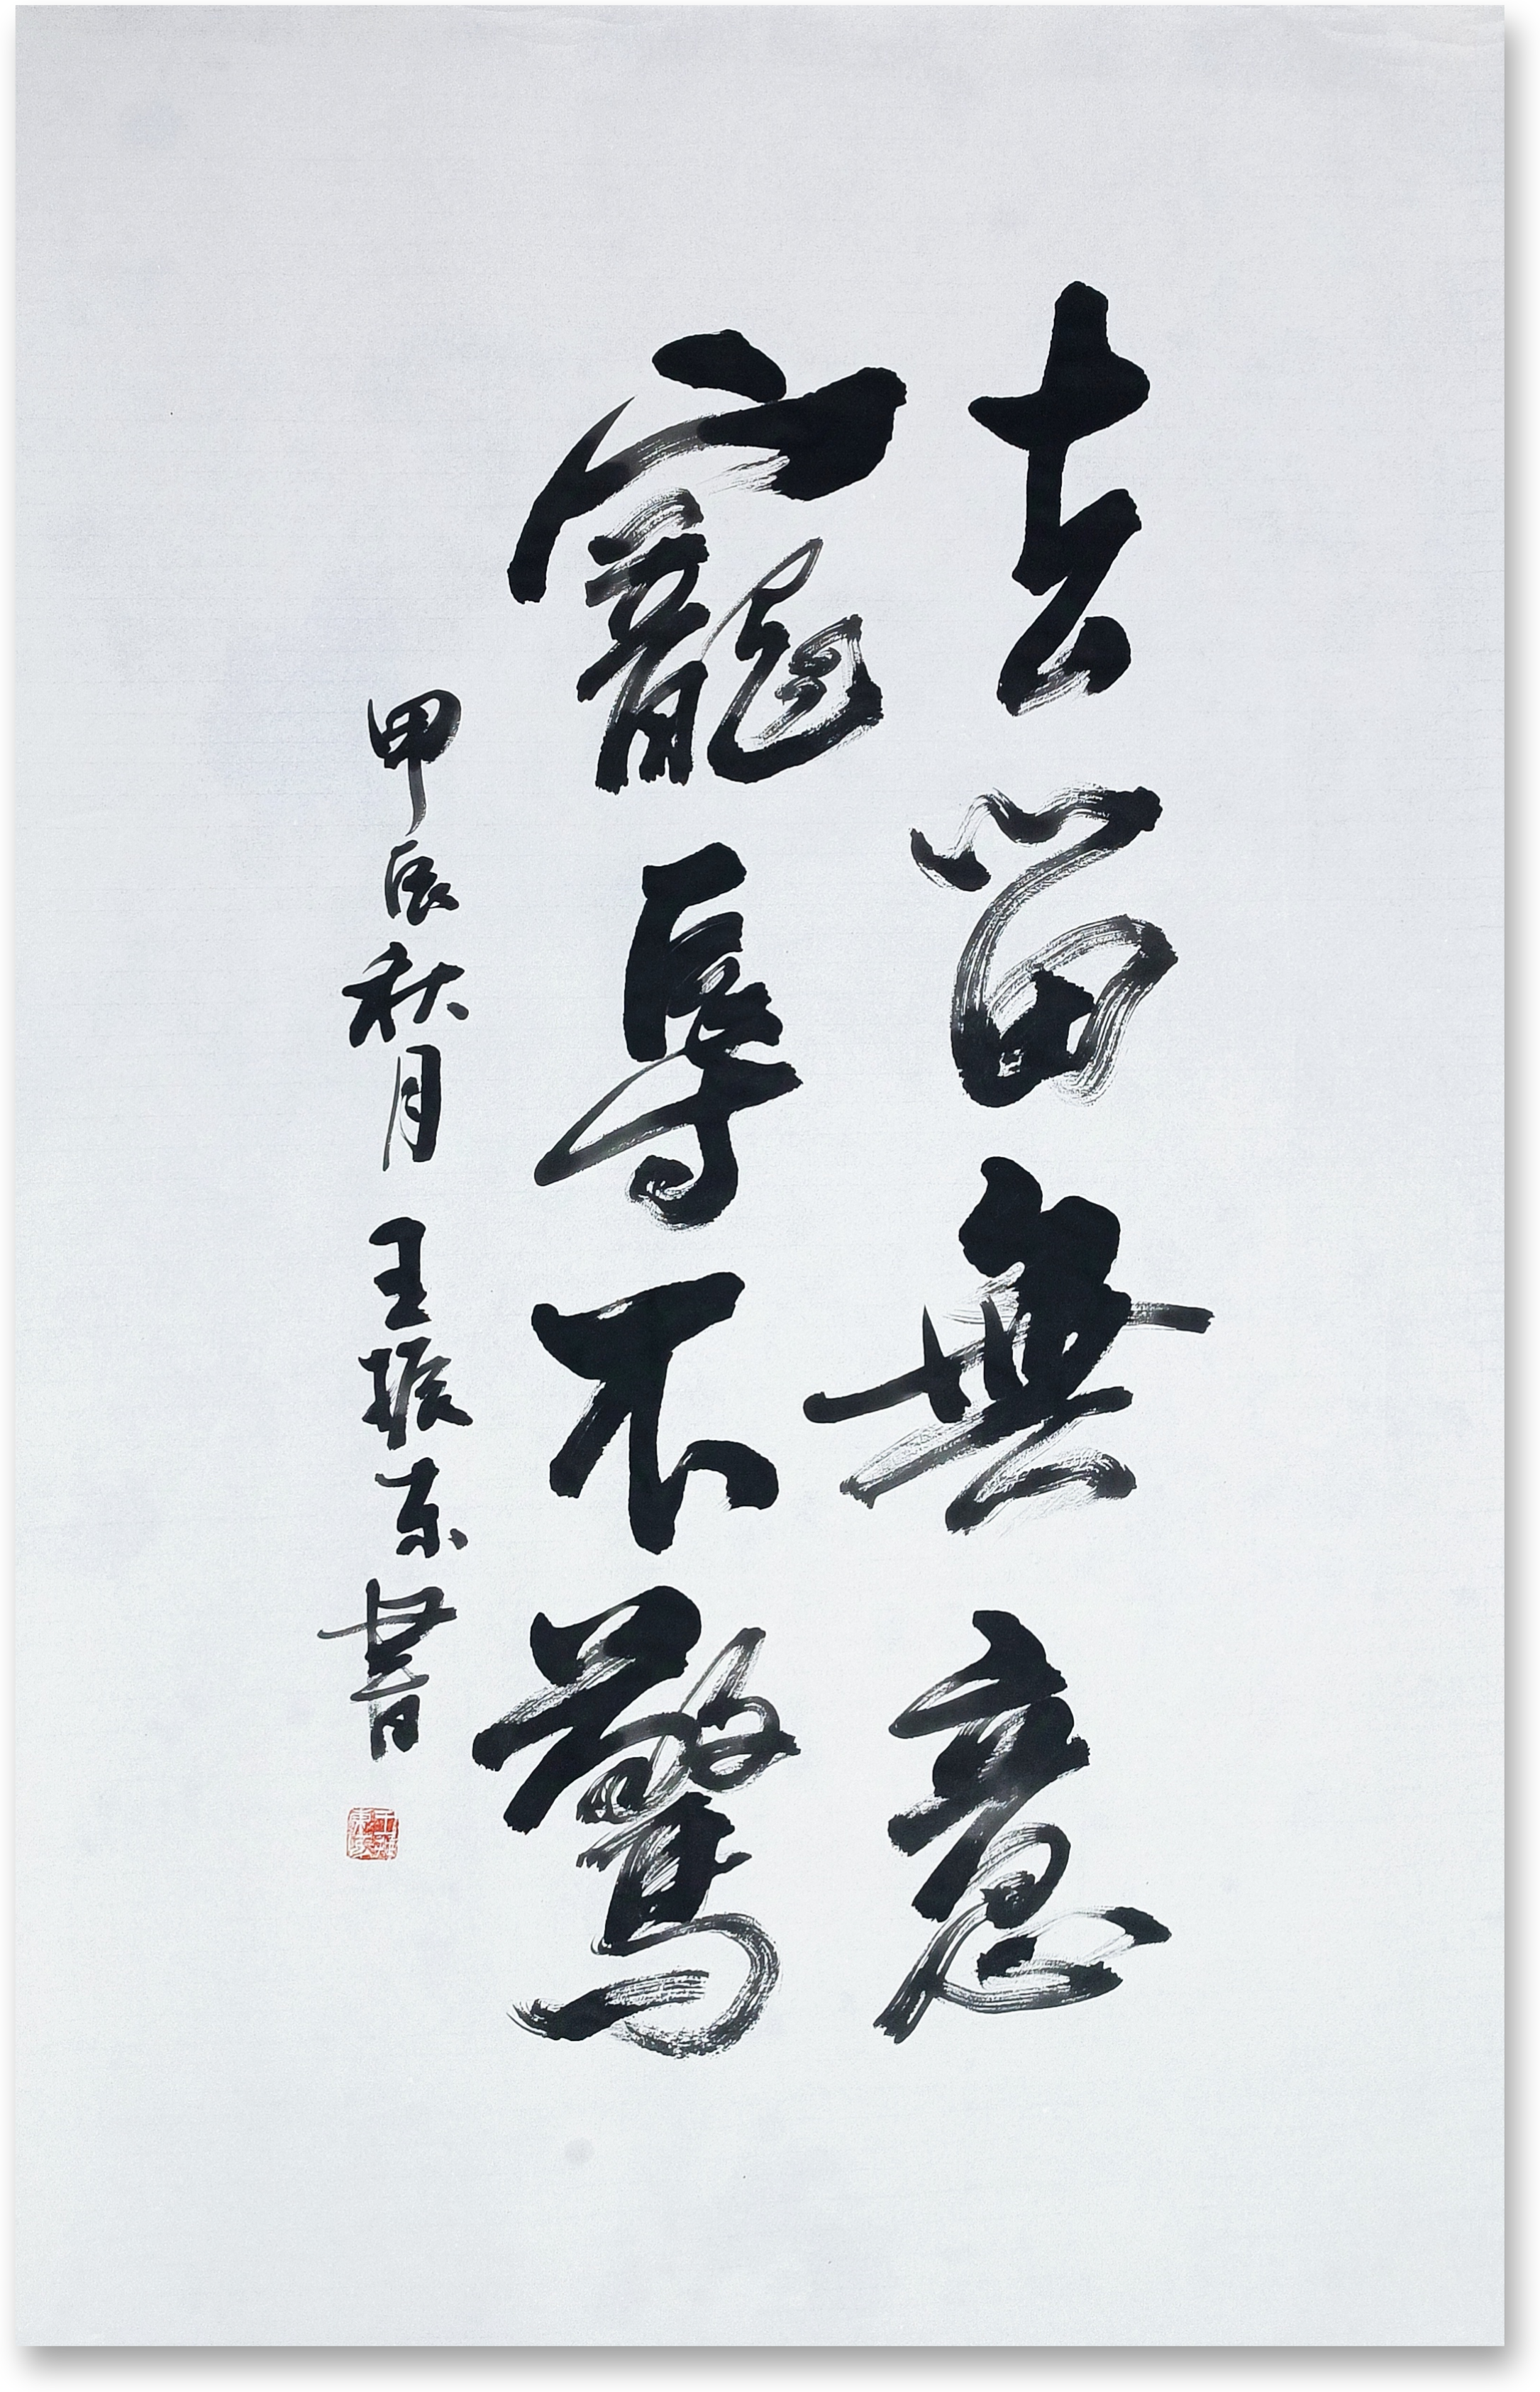 去留無意
寵辱不驚
甲辰秋月 王振东書